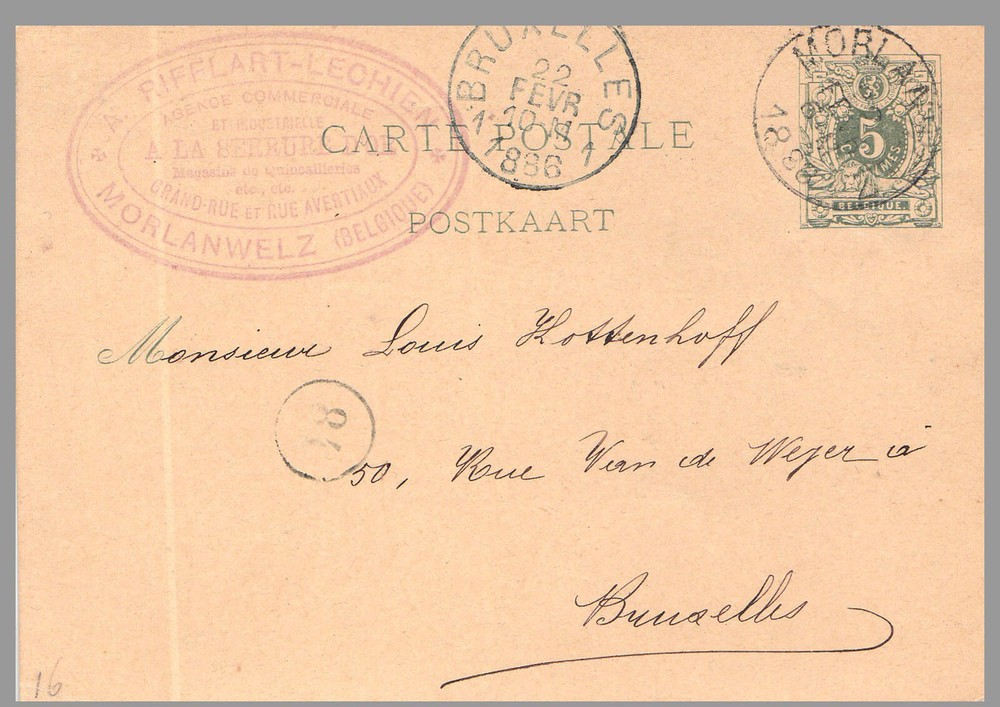 A. RIFFLART-LECHIEN
AGENCE COMMERCIALE
ET INDUSTRIELLE
A LA SERRURERIE
Magasins de quincailleries
etc., etc.
GRAND-RUE ET RUE AVERTIAUX
MORLANWELZ (BELGIQUE)
BRUXELLES
22
FEVR
10-M
1886
1 1
MORLANWELZ
1886
5
BELGIQUE
CARTE POSTALE
POSTKAART
Monsieur Louis Hottenhoff
18
50, Rue Van de Weyer à
Bruxelles
16